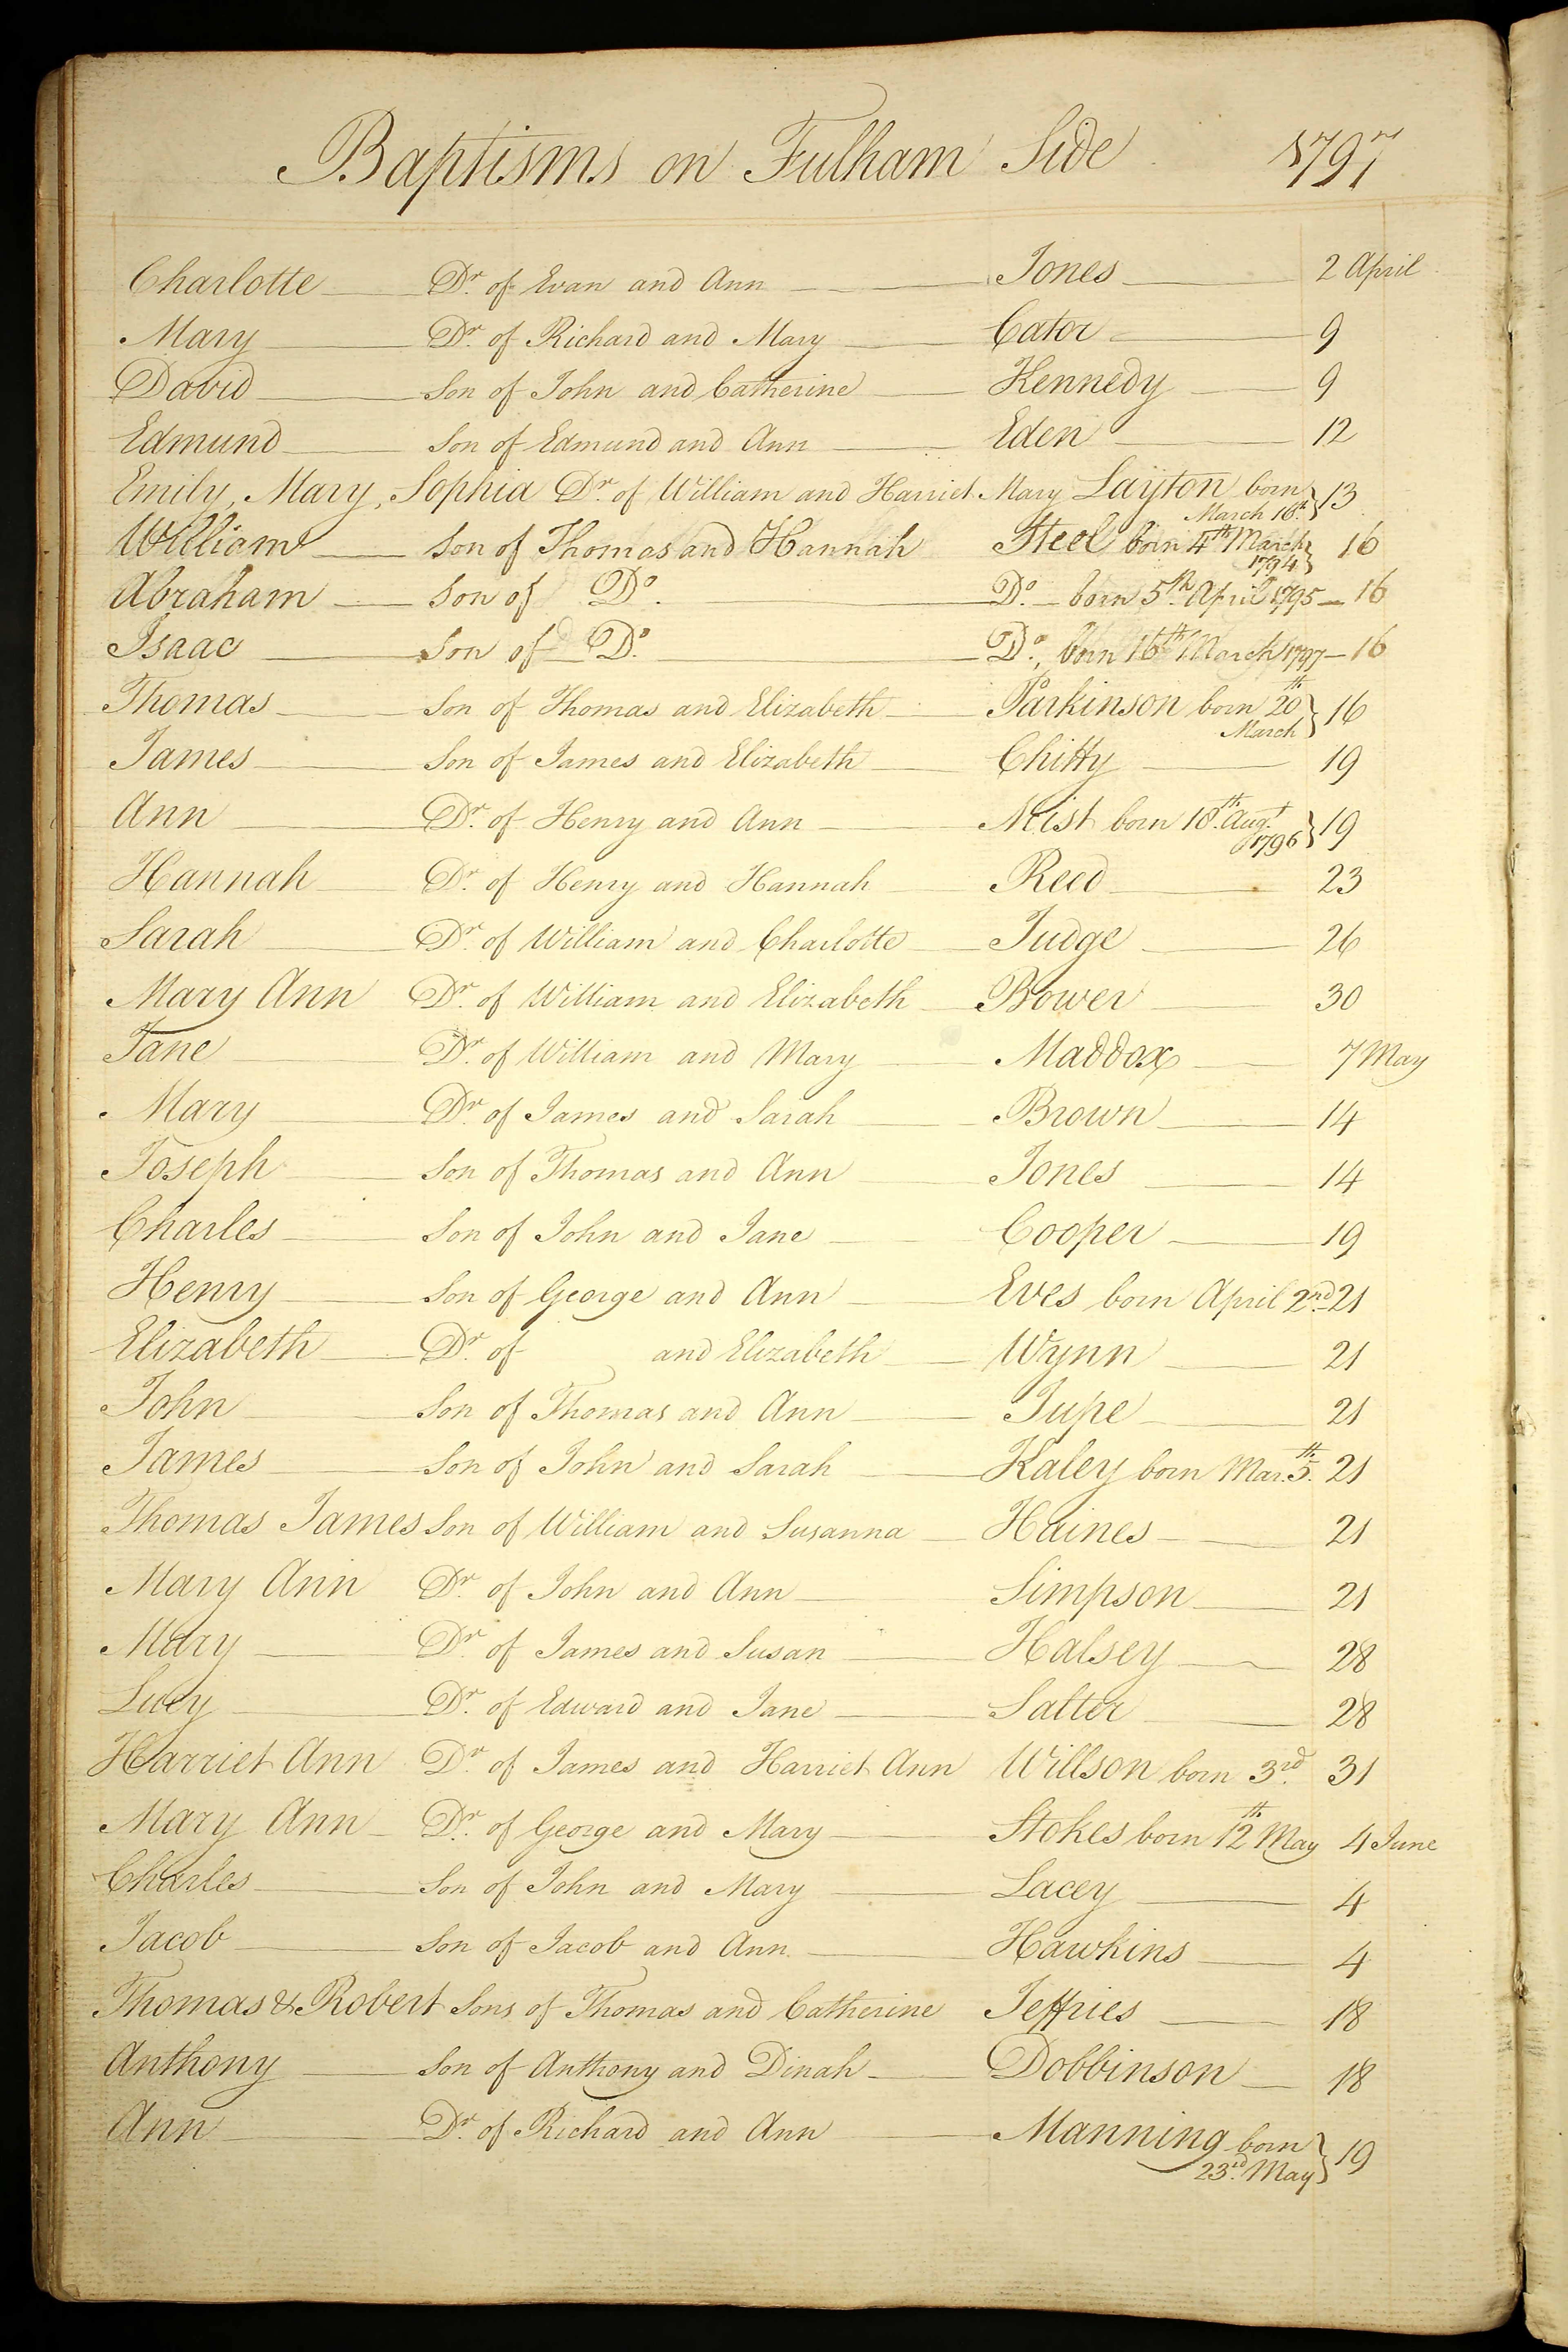 Baptisms on Fulham Side 1797
Charlotte Dr. of Evan and Ann Jones 2 April
Mary Dr. of Richard and Mary Cator 9
David Son of John and Catherine Kennedy 9
Edmund Son of Edmund and Ann Eden 12
Emily, Mary, Sophia Dr. of William and Harriet Mary Layton born 13
March 16th
William Son of Thomas and Hannah Steel born 4th March 16
1794
Abraham Son of Do. Do. born 5th April 1795 16
Isaac Son of Do. Do. born 16th March 1797 16
Thomas Son of Thomas and Elizabeth Parkinson born 20th 16
March
James Son of James and Elizabeth Chitty 19
Ann Dr. of Henry and Ann Mist born 18th Augt. 19
1796
Hannah Dr. of Henry and Hannah Reed 23
Sarah Dr. of William and Charlotte Judge 26
Mary Ann Dr. of William and Elizabeth Bower 30
Jane Dr. of William and Mary Maddox 7 May
Mary Dr. of James and Sarah Brown 14
Joseph Son of Thomas and Ann Jones 14
Charles Son of John and Jane Cooper 19
Henry Son of George and Ann Eves born April 2nd 21
Elizabeth Dr. of and Elizabeth Wynn 21
John Son of Thomas and Ann Jupe 21
James Son of John and Sarah Kaley born Mar. 5th. 21
Thomas James Son of William and Susanna Haines 21
Mary Ann Dr. of John and Ann Simpson 21
Mary Dr. of James and Susan Halsey 28
Lucy Dr. of Edward and Jane Salter 28
Harriet Ann Dr. of James and Harriet Ann Willson born 3rd. 31
Mary Ann Dr. of George and Mary Stokes born 12th May 4 June
Charles Son of John and Mary Lacey 4
Jacob Son of Jacob and Ann Hawkins 4
Thomas & Robert Sons of Thomas and Catherine Jeffries 18
Anthony Son of Anthony and Dinah Dobbinson 18
Ann Dr. of Richard and Ann Manning born 19
23rd. May